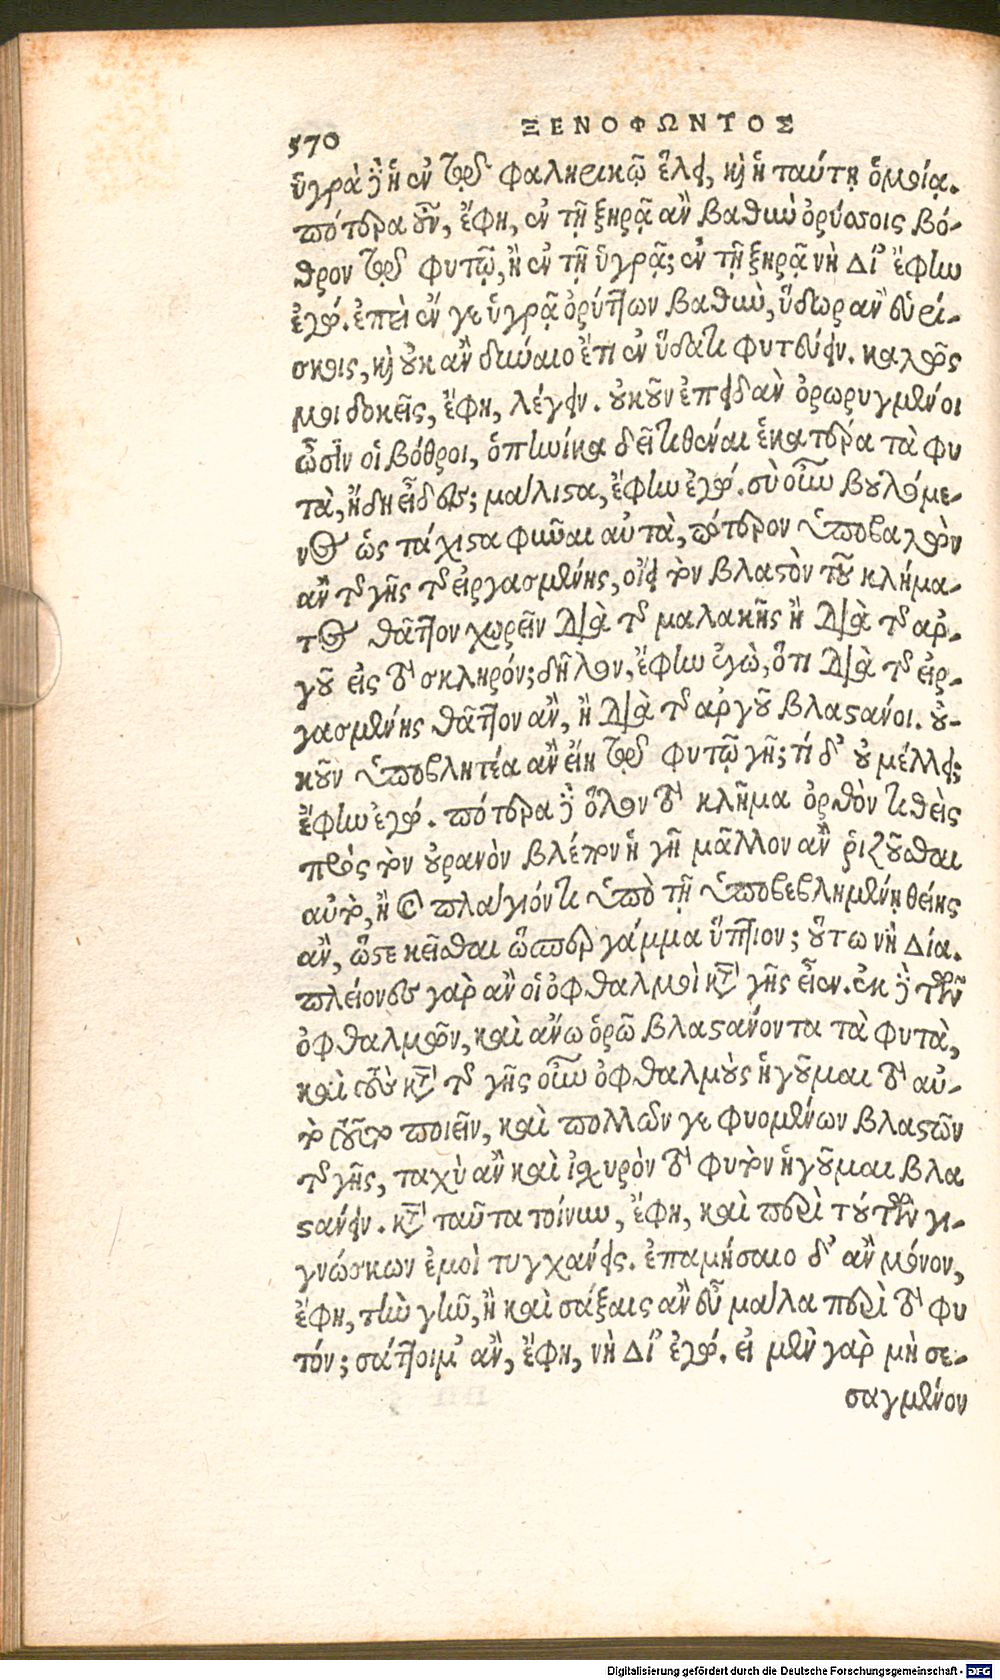 570
ΞΕΝΟΦΩΝΤΟΣ
ὑγρὰ γὰρ ἡ ἐν τῷ Φαληρικῷ ἕλει, καὶ ἡ ταύτῃ ὁμοία.
πότερα οὖν, ἔφη, ἐν τῇ ξηρᾷ ἂν βαθὺν ὀρύσσοις βό-
θρον τῷ φυτῷ, ἢ ἐν τῇ ὑγρᾷ; ἐν τῇ ξηρᾷ νὴ Δί' ἔφην
ἐγώ. ἐπεὶ ἔν γε ὑγρᾷ ὀρύττων βαθὺν, ὕδωρ ἂν εὑρί-
σκοις, καὶ οὐκ ἂν δύναιο ἔτι ἐν ὕδατι φυτεύειν. καλῶς
μοι δοκεῖς, ἔφη, λέγειν. οὐκοῦν ἐπειδὰν ὀρωρυγμένοι
ὦσιν οἱ βόθροι, ὁπηνίκα δεῖ τιθέναι ἑκατέρα τὰ φυ
τὰ, ἤδη εἶδες; μάλιστα, ἔφην ἐγώ. σὺ οὖν βουλόμε-
νος ὡς τάχιστα φῦναι αὐτὰ, πότερον ὑποβαλὼν
ἂν τῆς γῆς τῆς εἰργασμένης, οἴει τὸν βλαστὸν τοῦ κλήμα-
τος θᾶττον χωρεῖν διὰ τῆς μαλακῆς ἢ διὰ τῆς ἀρ-
γοῦ εἰς τὸ σκληρόν; δῆλον, ἔφην ἐγὼ, ὅτι διὰ τῆς εἰρ-
γασμένης θᾶττον ἂν, ἢ διὰ τῆς ἀργοῦ βλαστάνοι. οὐ-
κοῦν ὑποβλητέα ἂν εἴη τῷ φυτῷ γῆ; τί δ' οὐ μέλλει;
ἔφην ἐγώ. πότερα γὰρ ὅλον τὸ κλῆμα ὀρθὸν τιθεὶς
πρὸς τὸν οὐρανὸν βλέπον ἡγῇ μᾶλλον ἂν ῥιζοῦσθαι
αὐτὸ, ἢ καὶ πλάγιόν τι ὑπὸ τῇ ὑποβεβλημένῃ θείης
ἂν, ὥστε κεῖσθαι ὥσπερ γάμμα ὕπτιον; οὕτω νὴ Δία.
πλείονες γὰρ ἂν οἱ ὀφθαλμοὶ κατὰ γῆς εἶεν. ἐκ γὰρ τῶν
ὀφθαλμῶν, καὶ ἄνω ὁρῶ βλαστάνοντα τὰ φυτὰ,
καὶ τοὺς κατὰ τῆς γῆς οὖν ὀφθαλμοὺς ἡγοῦμαι τὸ αὐ-
τὸ τοῦτο ποιεῖν, καὶ πολλῶν γε φυομένων βλαστῶν
τῆς γῆς, ταχὺ ἂν καὶ ἰσχυρὸν τὸ φυτὸν ἡγοῦμαι βλα
στάνειν. κατὰ ταῦτα τοίνυν, ἔφη, καὶ περὶ τούτων γι-
γνώσκων ἐμοὶ τυγχάνεις. ἐπαμήσαιο δ' ἂν μόνον,
ἔφη, τὴν γῆν, ἢ καὶ σάξαις ἂν εὖ μάλα περὶ τὸ φυ
τόν; σάττοιμ' ἂν, ἔφη, νὴ Δί' ἐγώ. εἰ μὲν γὰρ μὴ σε-
σαγμένον
Digitalisierung gefördert durch die Deutsche Forschungsgemeinschaft - DFG